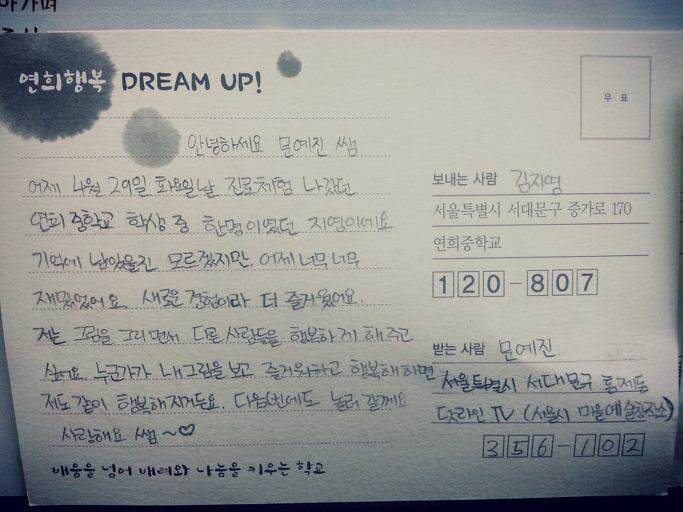 연희행복 DREAM UP!
우 표
안녕하세요 문예진 쌤
어제 4월 29일 화요일날 진로체험 나갔던
연희 중학교 학생 중 한명이였던 지영이에요
기억에 남았을진 모르겠지만. 어제 너무너무
재밌었어요. 새로운 경험이라 더 즐거웠어요.
저는 그림을 그리면서 다른 사람들을 행복하게 해주고
싶어요. 누군가가 내그림을 보고 즐거워하고 행복해하면
저도 같이 행복해지거든요. 다음번에도 놀러 갈게요
사랑해요 쌤~♡
배움을 넘어 배려와 나눔을 키우는 학교
보내는 사람 김지영
서울특별시 서대문구 증가로 170
연희중학교
120-807
받는 사람 문예진
서울특별시 서대문구 홍제동
TV (서울시
356-102